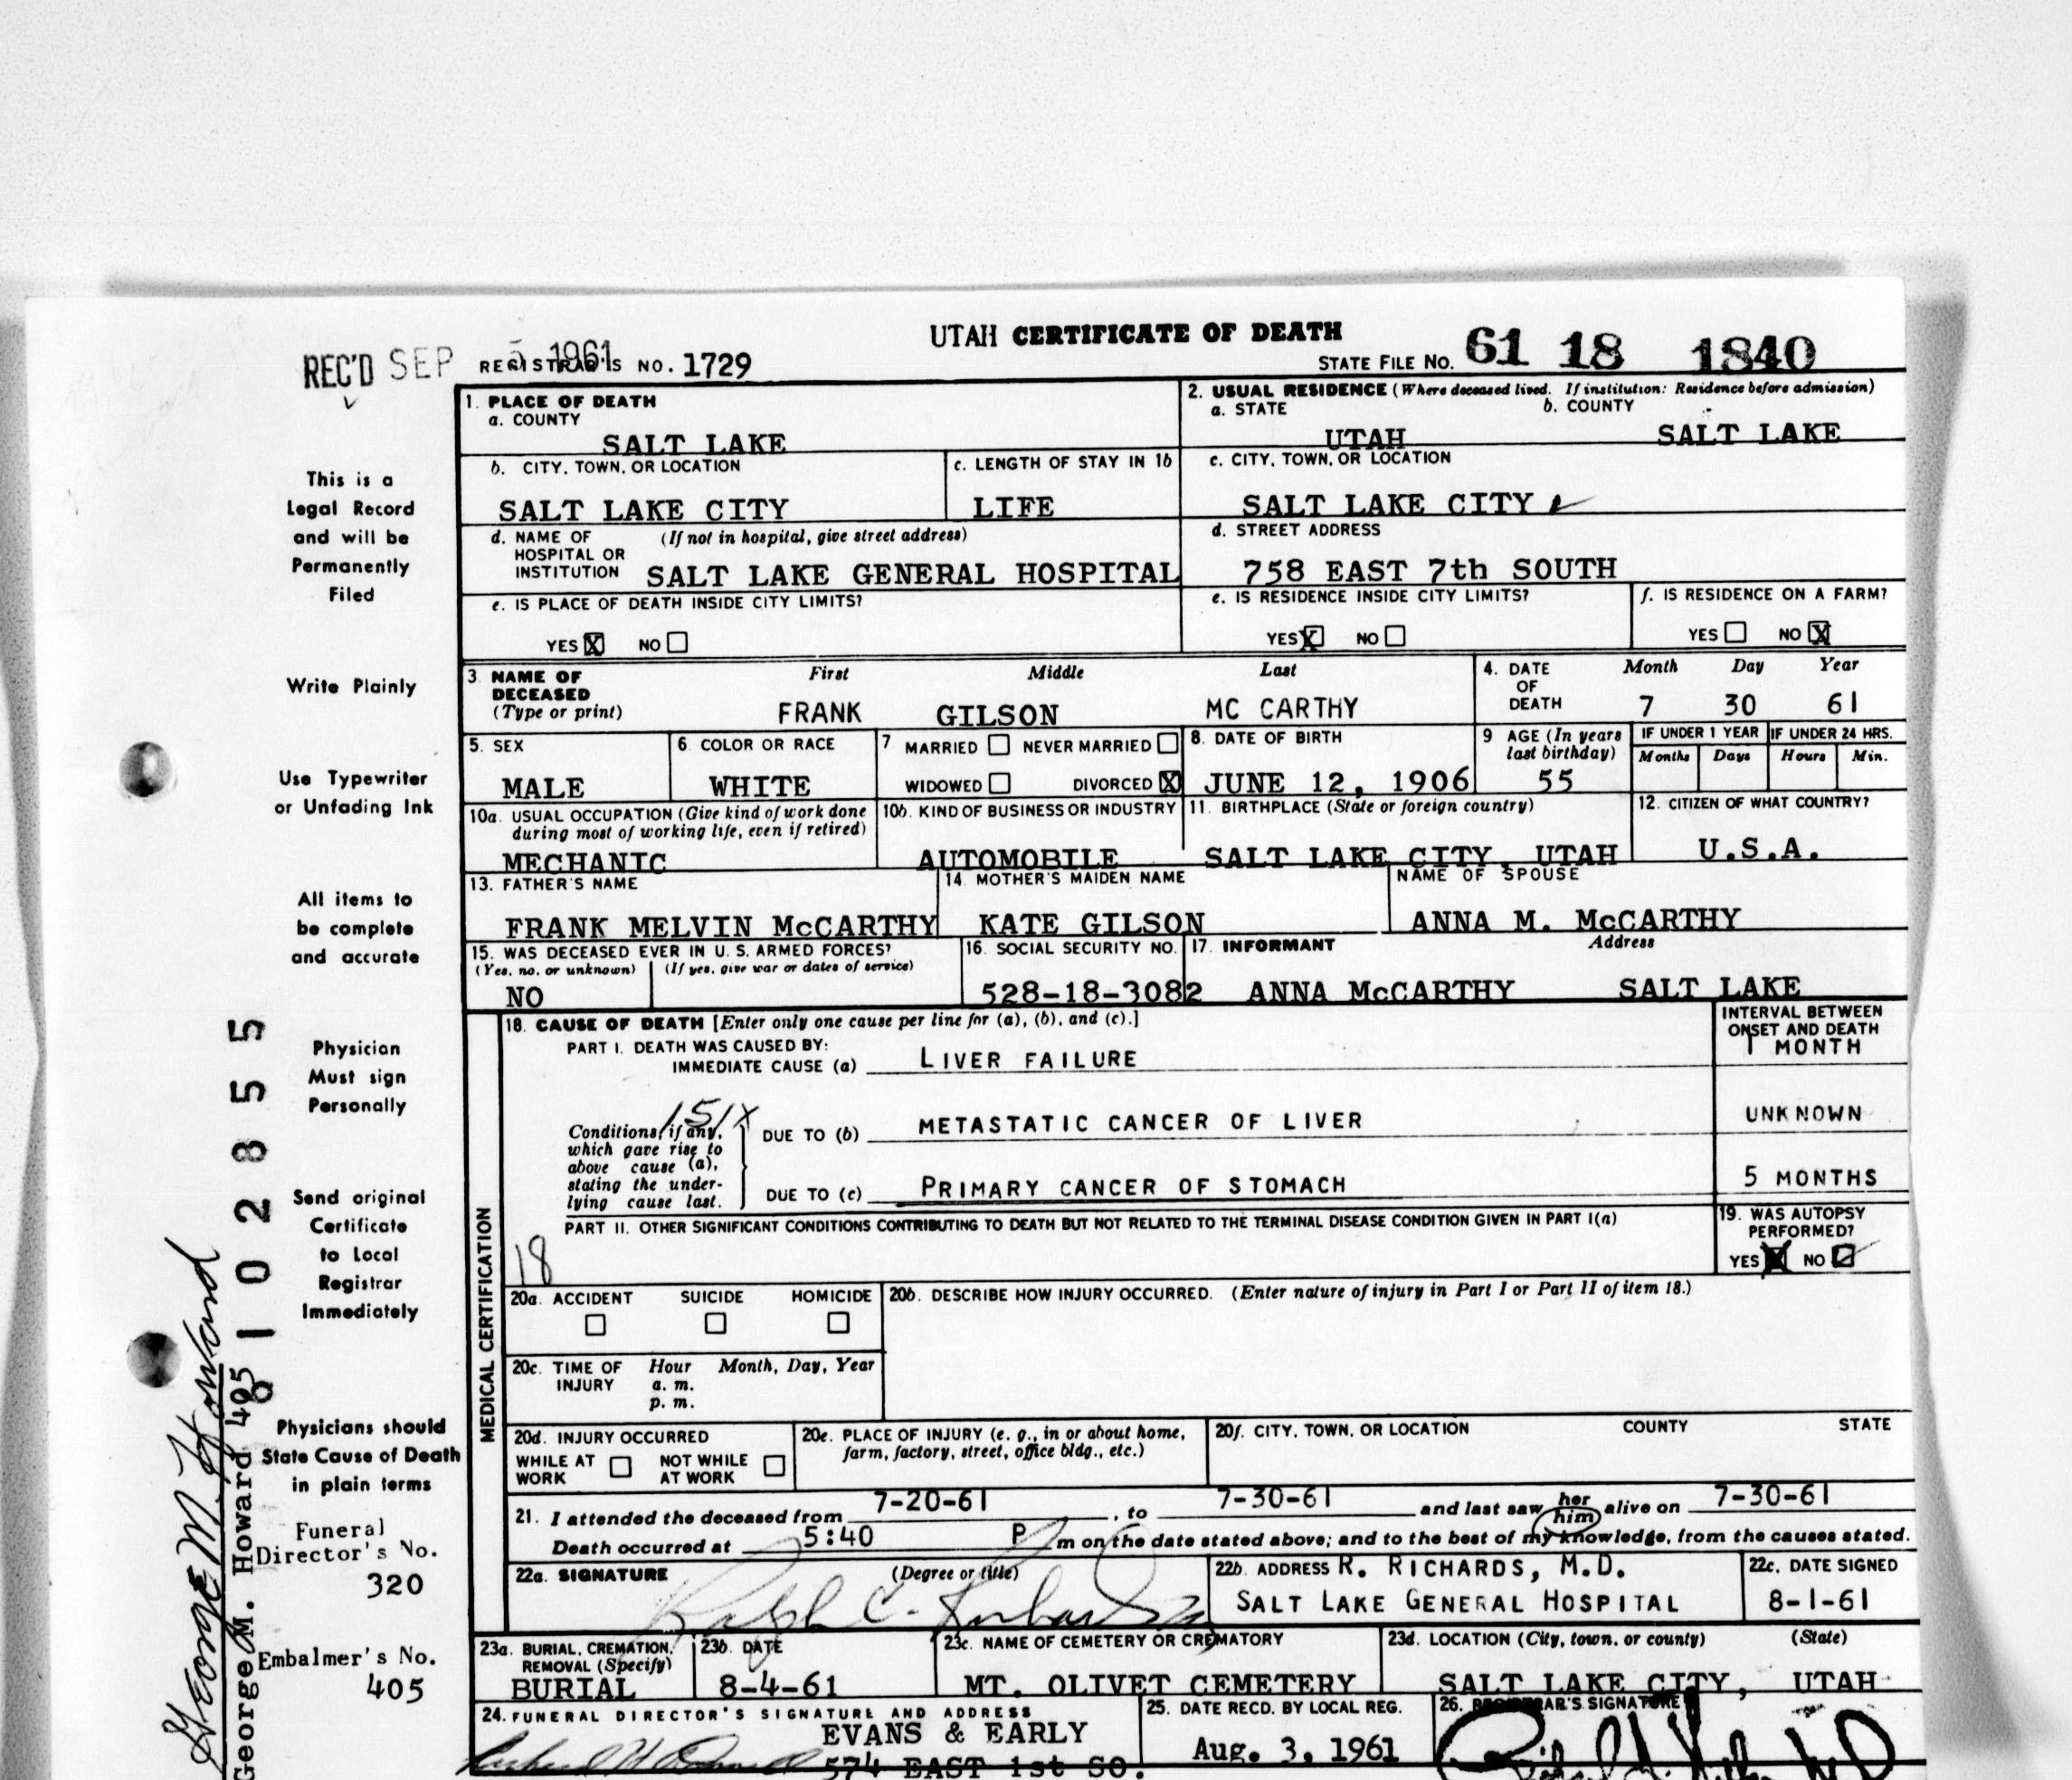 UTAH CERTIFICATE OF DEATH
REC'D SEP 5 1961 REGISTRAR'S NO. 1729
STATE FILE NO. 61 18 1840
1. PLACE OF DEATH
a. COUNTY
SALT LAKE
2. USUAL RESIDENCE (Where deceased lived. If institution: Residence before admission)
a. STATE b. COUNTY
UTAH SALT LAKE
b. CITY, TOWN, OR LOCATION
SALT LAKE CITY
c. LENGTH OF STAY IN 1b
LIFE
c. CITY, TOWN, OR LOCATION
SALT LAKE CITY
d. NAME OF HOSPITAL OR INSTITUTION (If not in hospital, give street address)
SALT LAKE GENERAL HOSPITAL
d. STREET ADDRESS
758 EAST 7th SOUTH
e. IS PLACE OF DEATH INSIDE CITY LIMITS?
YES X NO
e. IS RESIDENCE INSIDE CITY LIMITS?
YES X NO
f. IS RESIDENCE ON A FARM?
YES NO X
3. NAME OF DECEASED (Type or print)
First Middle Last
FRANK GILSON MC CARTHY
4. DATE OF DEATH
Month Day Year
7 30 61
5. SEX
MALE
6. COLOR OR RACE
WHITE
7 MARRIED NEVER MARRIED
WIDOWED DIVORCED X
8. DATE OF BIRTH
JUNE 12, 1906
9 AGE (In years last birthday)
55
IF UNDER 1 YEAR
Months Days
IF UNDER 24 HRS.
Hours Min.
10a. USUAL OCCUPATION (Give kind of work done during most of working life, even if retired)
MECHANIC
10b. KIND OF BUSINESS OR INDUSTRY
AUTOMOBILE
11. BIRTHPLACE (State or foreign country)
SALT LAKE CITY, UTAH
12. CITIZEN OF WHAT COUNTRY?
U.S.A.
13. FATHER'S NAME
FRANK MELVIN McCARTHY
14. MOTHER'S MAIDEN NAME
KATE GILSON
NAME OF SPOUSE
ANNA M. McCARTHY
15. WAS DECEASED EVER IN U. S. ARMED FORCES?
(Yes, no, or unknown) (If yes, give war or dates of service)
NO
16. SOCIAL SECURITY NO.
528-18-3082
17. INFORMANT Address
ANNA McCARTHY SALT LAKE
MEDICAL CERTIFICATION
18. CAUSE OF DEATH [Enter only one cause per line for (a), (b), and (c).]
INTERVAL BETWEEN ONSET AND DEATH
PART I. DEATH WAS CAUSED BY:
IMMEDIATE CAUSE (a) LIVER FAILURE
1 MONTH
151X
Conditions, if any, which gave rise to above cause (a), stating the underlying cause last.
DUE TO (b) METASTATIC CANCER OF LIVER
UNKNOWN
DUE TO (c) PRIMARY CANCER OF STOMACH
5 MONTHS
PART II. OTHER SIGNIFICANT CONDITIONS CONTRIBUTING TO DEATH BUT NOT RELATED TO THE TERMINAL DISEASE CONDITION GIVEN IN PART I(a)
18
19. WAS AUTOPSY PERFORMED?
YES NO
20a. ACCIDENT SUICIDE HOMICIDE
20b. DESCRIBE HOW INJURY OCCURRED. (Enter nature of injury in Part I or Part II of item 18.)
20c. TIME OF INJURY
Hour Month, Day, Year
a. m.
p. m.
20d. INJURY OCCURRED
WHILE AT WORK NOT WHILE AT WORK
20e. PLACE OF INJURY (e. g., in or about home, farm, factory, street, office bldg., etc.)
20f. CITY, TOWN, OR LOCATION COUNTY STATE
21. I attended the deceased from 7-20-61, to 7-30-61 and last saw her him alive on 7-30-61
Death occurred at 5:40 P m on the date stated above; and to the best of my knowledge, from the causes stated.
22a. SIGNATURE (Degree or title)
Ralph C. Richards
22b. ADDRESS R. RICHARDS, M.D.
SALT LAKE GENERAL HOSPITAL
22c. DATE SIGNED
8-1-61
23a. BURIAL, CREMATION, REMOVAL (Specify)
BURIAL
23b. DATE
8-4-61
23c. NAME OF CEMETERY OR CREMATORY
MT. OLIVET CEMETERY
23d. LOCATION (City, town, or county) (State)
SALT LAKE CITY, UTAH
24. FUNERAL DIRECTOR'S SIGNATURE AND ADDRESS
EVANS & EARLY
574 EAST 1st SO.
25. DATE RECD. BY LOCAL REG.
Aug. 3, 1961
26. REGISTRAR'S SIGNATURE
This is a
Legal Record
and will be
Permanently
Filed
Write Plainly
Use Typewriter
or Unfading Ink
All items to
be complete
and accurate
Physician
Must sign
Personally
Send original
Certificate
to Local
Registrar
Immediately
Physicians should
State Cause of Death
in plain terms
Funeral
Director's No.
320
Embalmer's No.
405
6102855
George M. Howard
George M. Howard 405